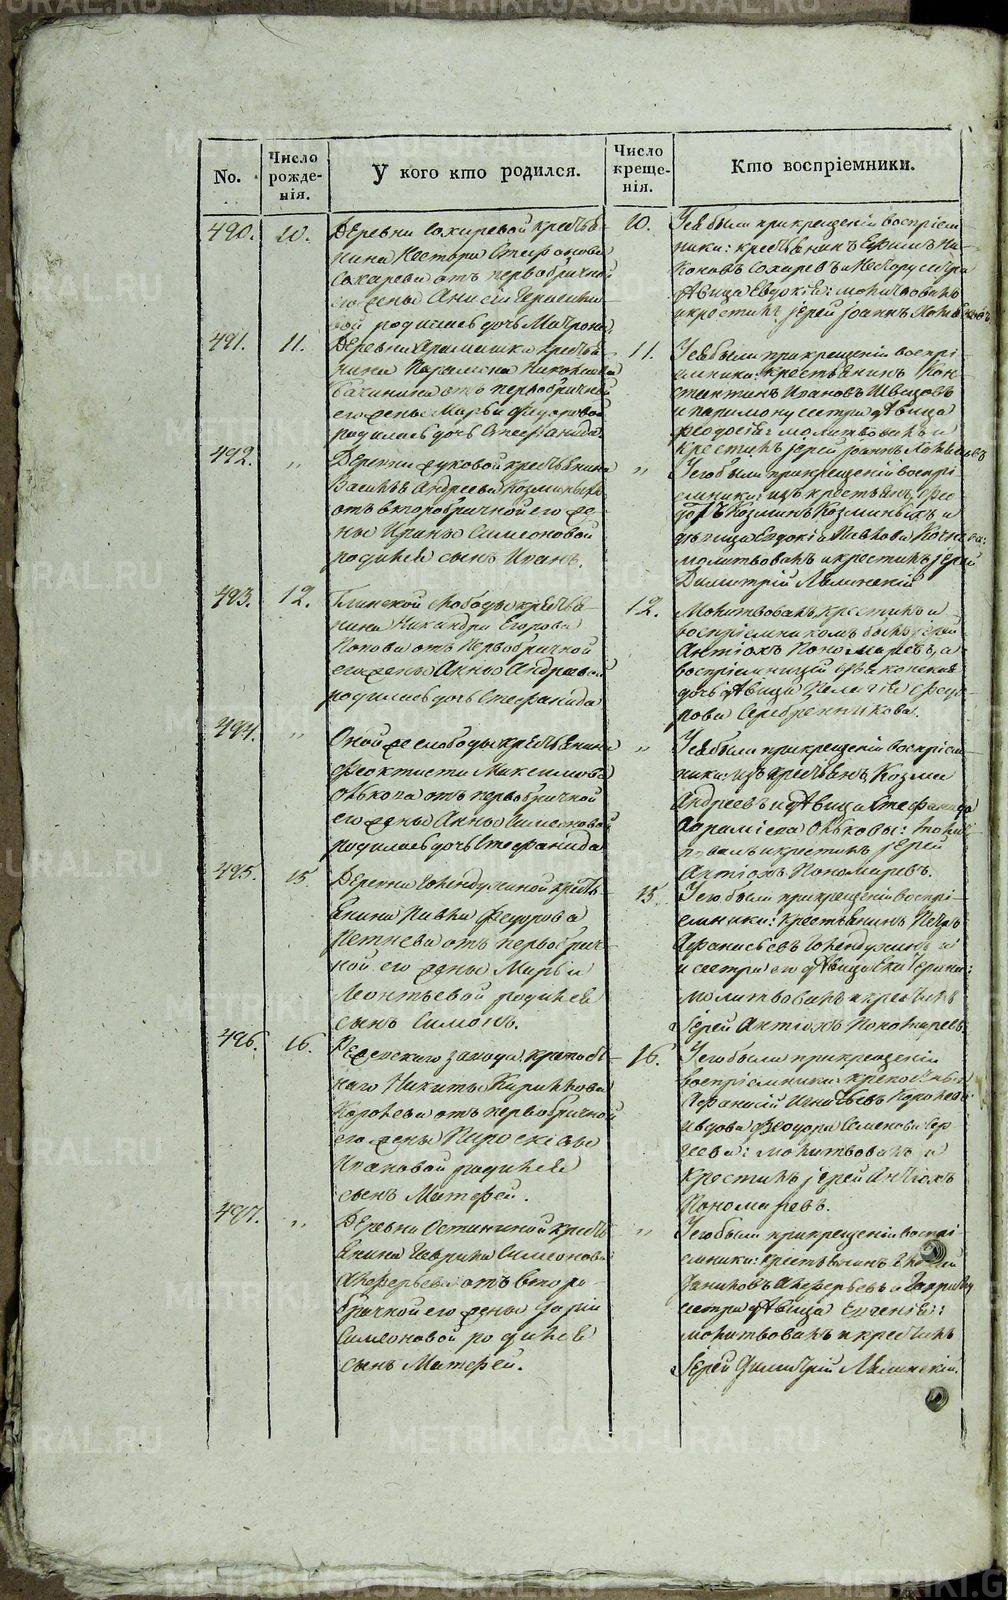 No.
Число рожденія.
У кого кто родился.
Число крещенія.
Кто воспріемники.
490.
10.
Деревни Сохаревой крестья-
нина Нестора Стефанова
Сохарева отъ первобрачной
его жены Анисіи
родилась дочь Матрона.
10.
Уея были при крещеніи воспріем-
ники: крестьянинъ Ефимъ Ни-
коновъ Сохаревъ и Нестору сестра
дѣвица Евдокія: молитвовалъ
и крестилъ іерей Іоаннъ
491.
11.
Деревни крестья-
нина Парамона Никонова
его жены Марьи Федоровой
родилась дочь Стефанида.
11.
Уея были при крещеніи воспрі-
емники: крестьянинъ Кон-
стантинъ Ивановъ Швецовъ
и Парамону сестра дѣвица
Феодосія: молитвовалъ и
крестилъ іерей Іоаннъ
492.
"
Деревни крестьянина
Василья Андреева Козминыхъ
отъ второбрачной его же-
ны Ирины Симеоновой
родился сынъ Иванъ.
"
Уего были при крещеніи воспрі-
емники: изъ крестьянъ, Фе-
дотъ Козминъ Козминыхъ и
дѣвица Евдокія Павлова
молитвовалъ и крестилъ іерей
Димитрій
493.
12.
Глинской слободы крестья-
нина Никандра Егорова
Попова отъ первобрачной
его жены Анны Андреевой
родилась дочь Стефанида
12.
Молитвовалъ, крестилъ и
воспріемникомъ былъ іерей
Антіохъ Пономаревъ, а
воспріемницей дьяконская
дочь дѣвица Пелагія Федо-
рова Серебренникова.
494.
"
Оной же слободы крестьянина
Феоктиста Максимова
Олькова отъ первобрачной
его жены Анны Симеоновой
родилась дочь Стефанида
"
Уея были при крещеніи воспріем-
ники: изъ крестьянъ, Козма
Андреевъ и дѣвица Стефанида
Ольковы: молит-
вовалъ и крестилъ іерей
Антіохъ Пономаревъ.
495.
15.
Деревни Голендухиной кресть-
янина Павла Федорова
отъ первобрач-
ной его жены Марьи
Леонтьевой родился
сынъ Симонъ.
15.
Уего были при крещеніи воспрі-
емники: крестьянинъ Петръ
Афанасьевъ Голендухинъ и
и сестра его дѣвица Екатерина:
молитвовалъ и крестилъ
іерей Антіохъ Пономаревъ
496.
16.
Режевскаго завода, крепост-
наго Никиты Кирилова
Королева отъ первобрачной
его жены Параскевы
Ивановой родился
сынъ Матфей.
16.
Уего были при крещеніи
воспріемники: крепостные
Афанасій Игнатьевъ Королевъ
и вдова Феодора Семенова
молитвовалъ и
крестилъ іерей Антіохъ
Пономаревъ.
497.
"
Деревни Останиной кресть-
янина Гаврила Симеонова
Алферьева отъ второ-
брачной его жены Даріи
Симеоновой родился
сынъ Матфей.
"
Уего были при крещеніи воспрі-
емники: крестьянинъ
Алферьевъ и Гаврилу
сестра дѣвица Евгенія:
молитвовалъ и крестилъ
іерей Димитрій